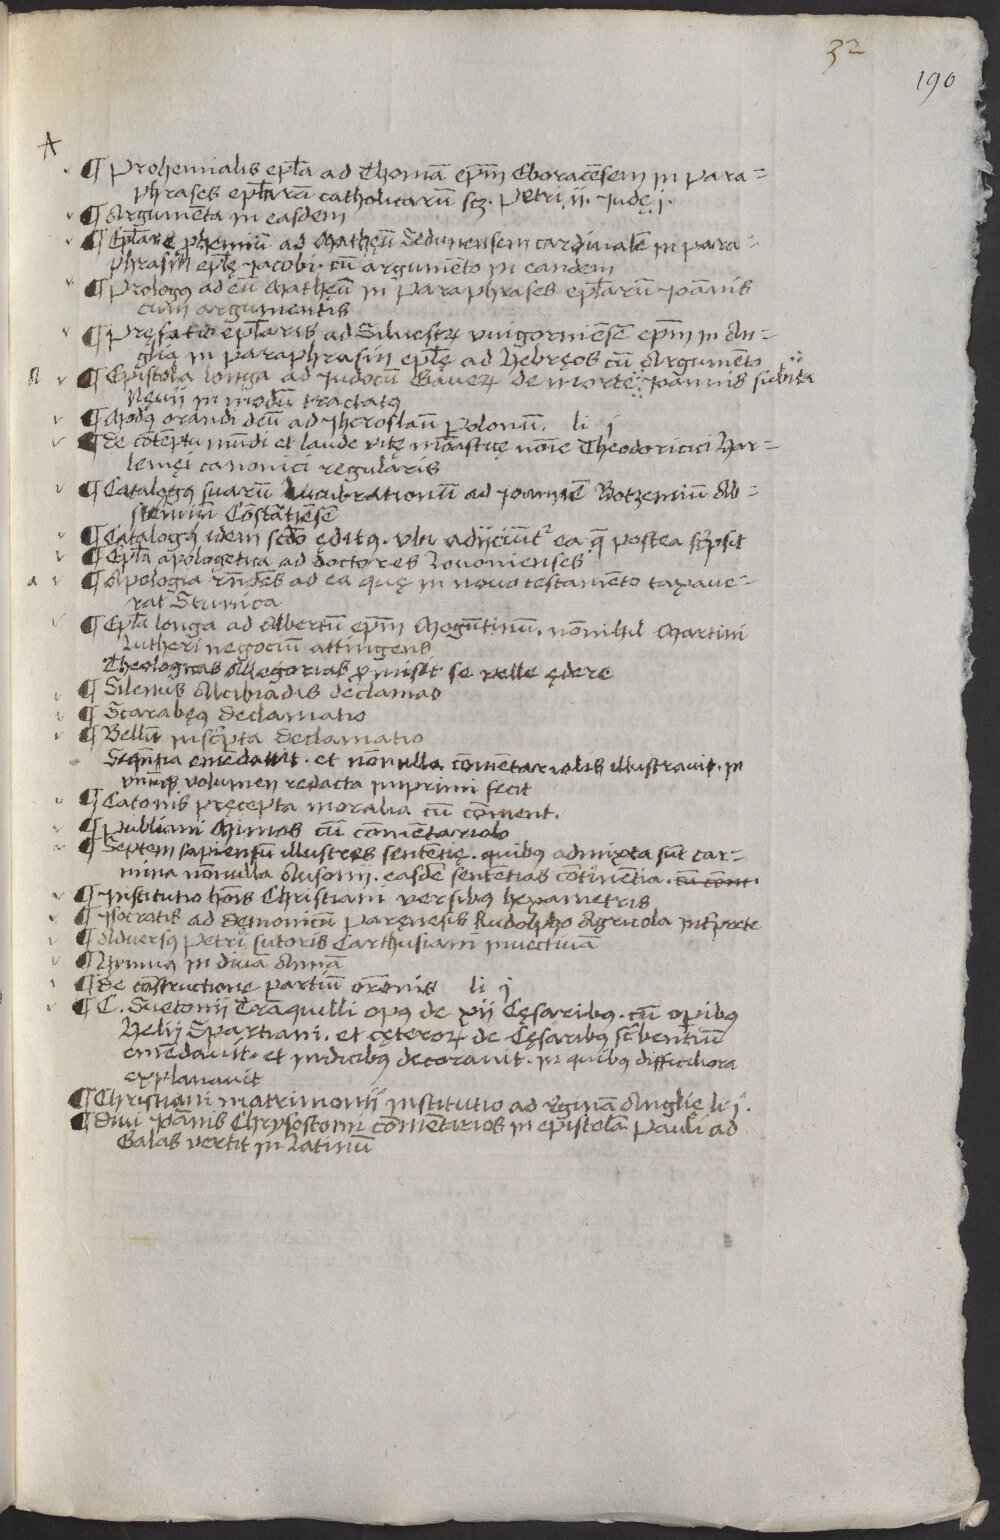 32
190
A
¶ Prohemialis ep̄la ad Thomā ep̄m Eboracēsem in para=
phrases ep̄larū catholicarū scz. Petri .ii. Judę .j.
¶ Argumēta in easdem
¶ Ep̄lare ꝓhemiū ad Mathęū Sedunensem cardinalē in para=
phrasin ep̄lę Jacobi. cū argumēto in eandem
¶ Prologꝰ ad eū Mathęū in paraphrases ep̄larū Joānis
cum argumentis
¶ Pręfatio ep̄laris ad Siluestꝝ vuigorniēsē ep̄m in An=
glia in paraphrasin ep̄lę ad Hebręos cū Argumēto
¶ Epistola longa ad Judocū Gaueꝝ de morte Joannis subita
Nęuij in modū tractatꝰ
¶ Modꝰ orandi deū ad Jheroslaū Polonū. li j
¶ De cōtēptu mūdi et laude vitę monasticę noīe Theodorici Har=
lemęi canonici regularis
¶ Catalogꝰ suarū lucubrationū ad Joannē Botzemiū Ab=
stemiū Cōstātiēsē
¶ Catalogꝰ idem scđo ęditꝰ. vbi adijciūt᷑ ea q̄ postea scͥpsit
¶ Ep̄la apologetica ad doctores Louonienses
¶ Apologia rn̄dēs ad ea quę in nouo testamēto taxaue=
rat Stunica
¶ Ep̄la longa ad Albertū ep̄m Mogūtinū. nōnihil Martini
Lutheri negociū attingens
Theologicas Allegorias ꝓmisit se velle ędere
¶ Silenus Alcibiadis declamaō
¶ Scarabęꝰ declamatio
¶ Bellū inscͥpta declamatio
Seq̄ntia emēdauit. et nōnulla cōmētariolis illustrauit. in
vnūqꝫ volumen redacta imprimi fecit
¶ Catonis pręcepta moralia cū cōment.
¶ Publiani Mimos cū cōmētariolo
¶ Septem sapientū illustres sentētię. quibꝰ admixta sūt car=
mina nōnulla Ausonij. easdē sententias cōtinētia. cū cōmt.
¶ Institutio hōis Christiani versibꝰ hexametris
¶ Isocratis ad dęmonicū paręnesis Rudolpho Agricola int̄prete
¶ Aduersꝰ Petri sutoris Carthusiani inuectiuā
¶ Hymnꝰ in diuā Annā
¶ De cōstructione partiū orōnis li j
¶ C. Suetonij Trāquilli opꝰ de xij Cęsaribꝰ. cū opibꝰ
Helij Spartiani. et cęteroꝝ de Cęsaribꝰ scͥbentiū
emēdauit. et indicibꝰ decorauit. in quibꝰ difficiliora
explanauit
¶ Christiani matrimonij institutio ad rginā Anglię li j.
¶ Diui Joānis Chrysostomi cōmētarios in epistolā Pauli ad
Galas vertit in Latinū